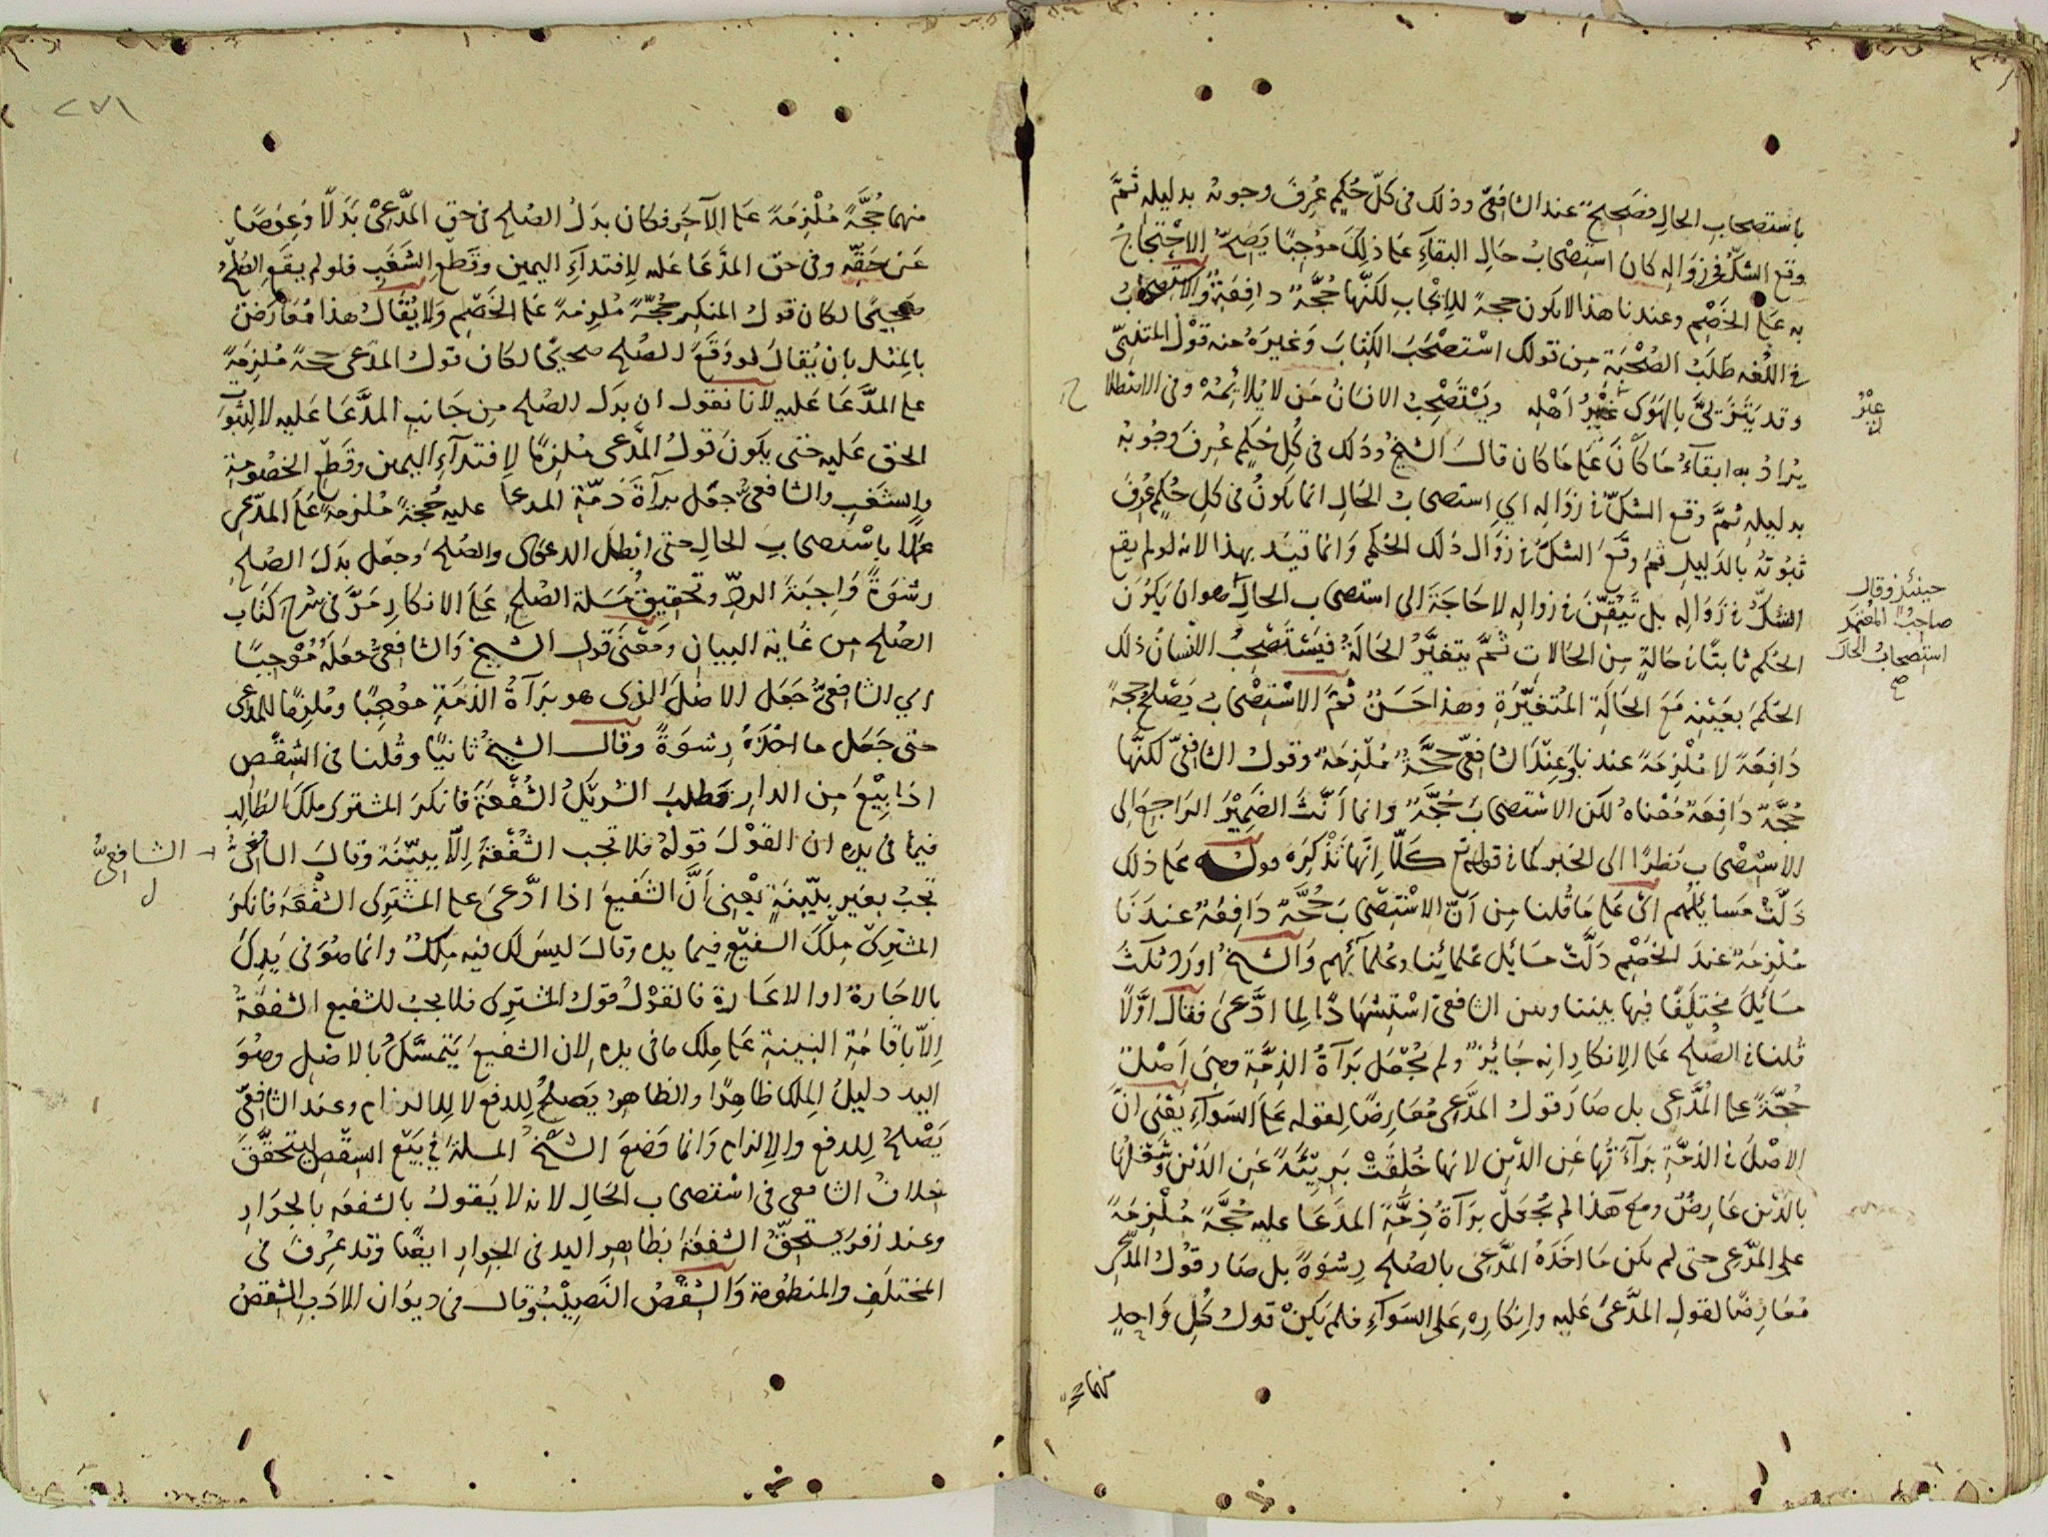 باستصحاب الحال فصحيح عند الشافعيّ وذلك في كلّ حُكمٍ عُرِفَ وجوبه بدليله ثمّ
وقع الشكّ في زواله كان استِصْحابُ حالِ البقاءِ عَلى ذلِكَ موجِبًا يَصِحّ الاحْتجاجُ
به عَلى الخَصْمِ وعندنا هذا لا يكون حجةً للإيجابِ لكنّها حُجّةٌ دافِعَةٌ والاستصحابُ
في اللُّغه طَلَبُ الصُّحْبَةِ مِن قولك استَصْحَبَ الكِتابَ وَغيرَهُ منه قَوْل المتنبّي
وقد يَتَزيَّ بالهَوَى غَيْرُ أهْلِه ويَسْتَصْحِبُ الانسَانُ مَن لا يُلائِمُهْ وفي الاصْطِلاح
يُرادُ به ابقاءُ مَا كانَ عَلى ما كان قالَ الشيخُ وذلك في كُلِ حُكمٍ عُرِفَ وجُوبُه
بدليلِه ثمَّ وقع الشكّ في زوالِه اي استصحابُ الحَالِ انما يَكونُ في كلِ حُكمٍ عُرِفَ
ثبوتُهُ بالدَليلِ ثمّ وقَعَ الشكُّ في زوال ذلك الحُكم وَانما قيّد بهذا لانه لو لم يقع
الشكّ في زوالِه بل تَيَقّنَ في زوالِه لا حَاجَةَ الى استصحاب الحالِ هو أن يَكُونَ
الحُكم ثابتًا في حالةٍ مِن الحَالات ثمَّ يتغيَّرُ الحَالَةُ فيَستَصْحِبُ الانسانُ ذلك
الحُكمَ بعَيْنِه مَعَ الحَالَةِ المُتغَيّرَةِ وهذا حَسَنٌ ثمَّ الاسْتِصْحابُ يَصْلحُ حجةً
دَافِعَةً لا مُلْزِمَةً عندنا وعِنْدَ الشافعيّ حجَّةٌ مُلْزِمَةٌ وقولُ الشافعيّ لكنَّها
حُجّةٌ دَافِعَةٌ مَعْناهُ لكن الاستصحابَ حُجّةٌ وَانما أنّثَ الضَمِيْرَ الراجِعَ إلى
الاسْتِصْحابِ نظرًا الى الخبر كما في قوله تع كَلّا إنّها تَذْكِرَة قوله عَلى ذلك
دَلّتْ مسايلُهم ائ عَلى ما قُلنا مِن أنّ الاسْتِصْحابَ حُجَّةٌ دَافِعَةٌ عِندَنا
مُلْزِمَةٌ عندَ الخَصْمِ دَلَّتْ مَسائِل عُلمائِنا وعُلمائِهم وَالشيخُ اورَدَ ثلثَ
مَسائِلَ مختلَفًا فيها بيننا وبين الشافعيّ اسْتِشْهادًا لِما ادَّعى فقال أوّلاً
قُلنا في الصُلْح عَلى الانكارِ انه جَائِزٌ ولم يُجْعَل بَرَآةُ الذِمَّةِ وهِيَ أصْلٌ
حُجّةً عَلى المُدَّعِي بل صَارَ قولُ المدَّعِي مُعارِضًا لِقوله عَلى السَوآءِ يَعْنِي أنّ
الاصْلَ في الذمّةِ بَرآءَتُها عَنِ الدَيْنِ لانها خُلِقَتْ بَرِيّئَةً عَنِ الدَيْنِ وشَغْلُها
بالدَيْنِ عَارِضٌ ومع هَذا لم يُجْعَلْ برَآةُ ذِمَّةِ المدَعَا عليه حُجّةً مُلْزِمَةً
على المدَّعي حتى لم يكن مَا اخَذَهُ المدَّعِي بالصُلح رِشوَةً بل صَار قَوْلُ المدّعي
مُعَارِضًا لقولِ المدَّعَى عَليه وانِكارِه عَلى السَوَآءِ فلم يَكنْ قولُ كُلِ وَاحِدٍ
منهما
غيْرُ
حينئذ وقال
صاحبُ المُعْتَمَد
استصحابُ الحال
صح
٢٧١
منهما حُجَّةً مُلْزِمَةً عَلى الآخَر فكان بدَلُ الصُلح في حق المدَّعِيْ بَدَلًا وَعِوَضًا
عَن حَقّه وفي حق المدَّعَا عَليه لافتدآءِ اليمين وقَطْعِ الشَغَبِ فلو لم يقَعِ الصُلْحُ
صَحِيحًا لكان قولُ المنكِر حُجّةً مُلزِمةً عَلى الخَصْمِ ولا يُقَالُ هذا مُعَارَضٌ
بالمِثل بان يُقالَ لو وَقَعَ الصُلح صحيحًا لكان قولُ المدَّعي حجةً مُلزِمَةً
على المدَّعَا عَليهِ لأنا نقول ان بَدَل الصُلح مِن جَانبِ المدَّعَا عَليه لا لِثُبوتِ
الحق عَليه حَتى يكونَ قولُ المدَّعى مُلزِمًا لافتدآءِ اليَمين وقَطْعِ الخصُومَةِ
والشَغَبِ والشافعيُّ جعَل برآةَ ذمّةِ المدعا عليه حُجةً مُلزمةً عَلى المدّعي
عَمَلا باسْتصحابِ الحالِ حتى ابْطلَ الدعوَى والصُلحَ وجعَل بدَلَ الصُلحِ
رشوةً وَاجِبَةَ الردِّ وتحقيقُ مَسَلة الصُلْحِ عَلَى الانكارِ مَرَّ في شرح كتاب
الصُلح من غَاية البيان ومَعْنَى قول الشيخ وَالشافعيُّ جعَلَهُ مُوجِبًا
اي الشافعيُّ جَعَل الاصْلَ الذى هو بَرَآةُ الذمّةِ مُوْجِبًا ومُلزِمًا للمدَّعى
حتى جَعَل ما اخذَهُ رِشوَةً وقال الشيخُ ثانيًا وقُلنا في الشِقْصِ
اذا بِيْعَ مِن الدارِ وطلبَ الشريكُ الشُفْعَةَ فانكرَ المشترى ملكَ الطالِبِ
فيما في يدهِ ان القَوْلَ قولُهُ فلا تجب الشُفْعَةُ إلّا ببيّنَة وقالَ
الشافعيُّ
تجبُ بغَير بَيّنَةٍ يَعْنِي أنَّ الشَفيعَ اذا ادَّعى على المشترى الشفعَةَ فانكرَ
المشتَرِى مِلْكَ الشفيعِ فيما يده وقالَ ليسَ لك فيه مِلكٌ وانما هُوَ في يَدِكَ
بالاجَارة او الاعَارة فالقوْلُ قولُ المشترى فلا يجبُ للشفيع الشفعَةُ
إلّا باقَامَةِ البينةِ عَلى مِلك ما في يده لان الشفيعَ يَتمسَّكُ بالاصْلِ وهُوَ
اليدُ دليلُ المِلك ظاهِرًا والظاهِرُ يَصلحُ للدفعِ لا للالزامِ وعند الشافعيّ
يَصْلحُ للدفع والإلزام وَانما وَضَعَ الشَيْخُ المسلةَ في بَيْع الشِقْص ليتحَقّقَ
خلافُ الشافعي في اسْتصحاب الحَالِ لانه لا يَقولُ بالشفعَه بالجَوارِ
وعند زفرَ يستحِقّ الشفعَةَ بظاهر اليد في الجوار ايضًا وقد عُرِفَ في
المختلَفِ والمنظومَة وَالشِقْصُ النَصِيْبُ وقال في ديوان الادَب الشِقصُ